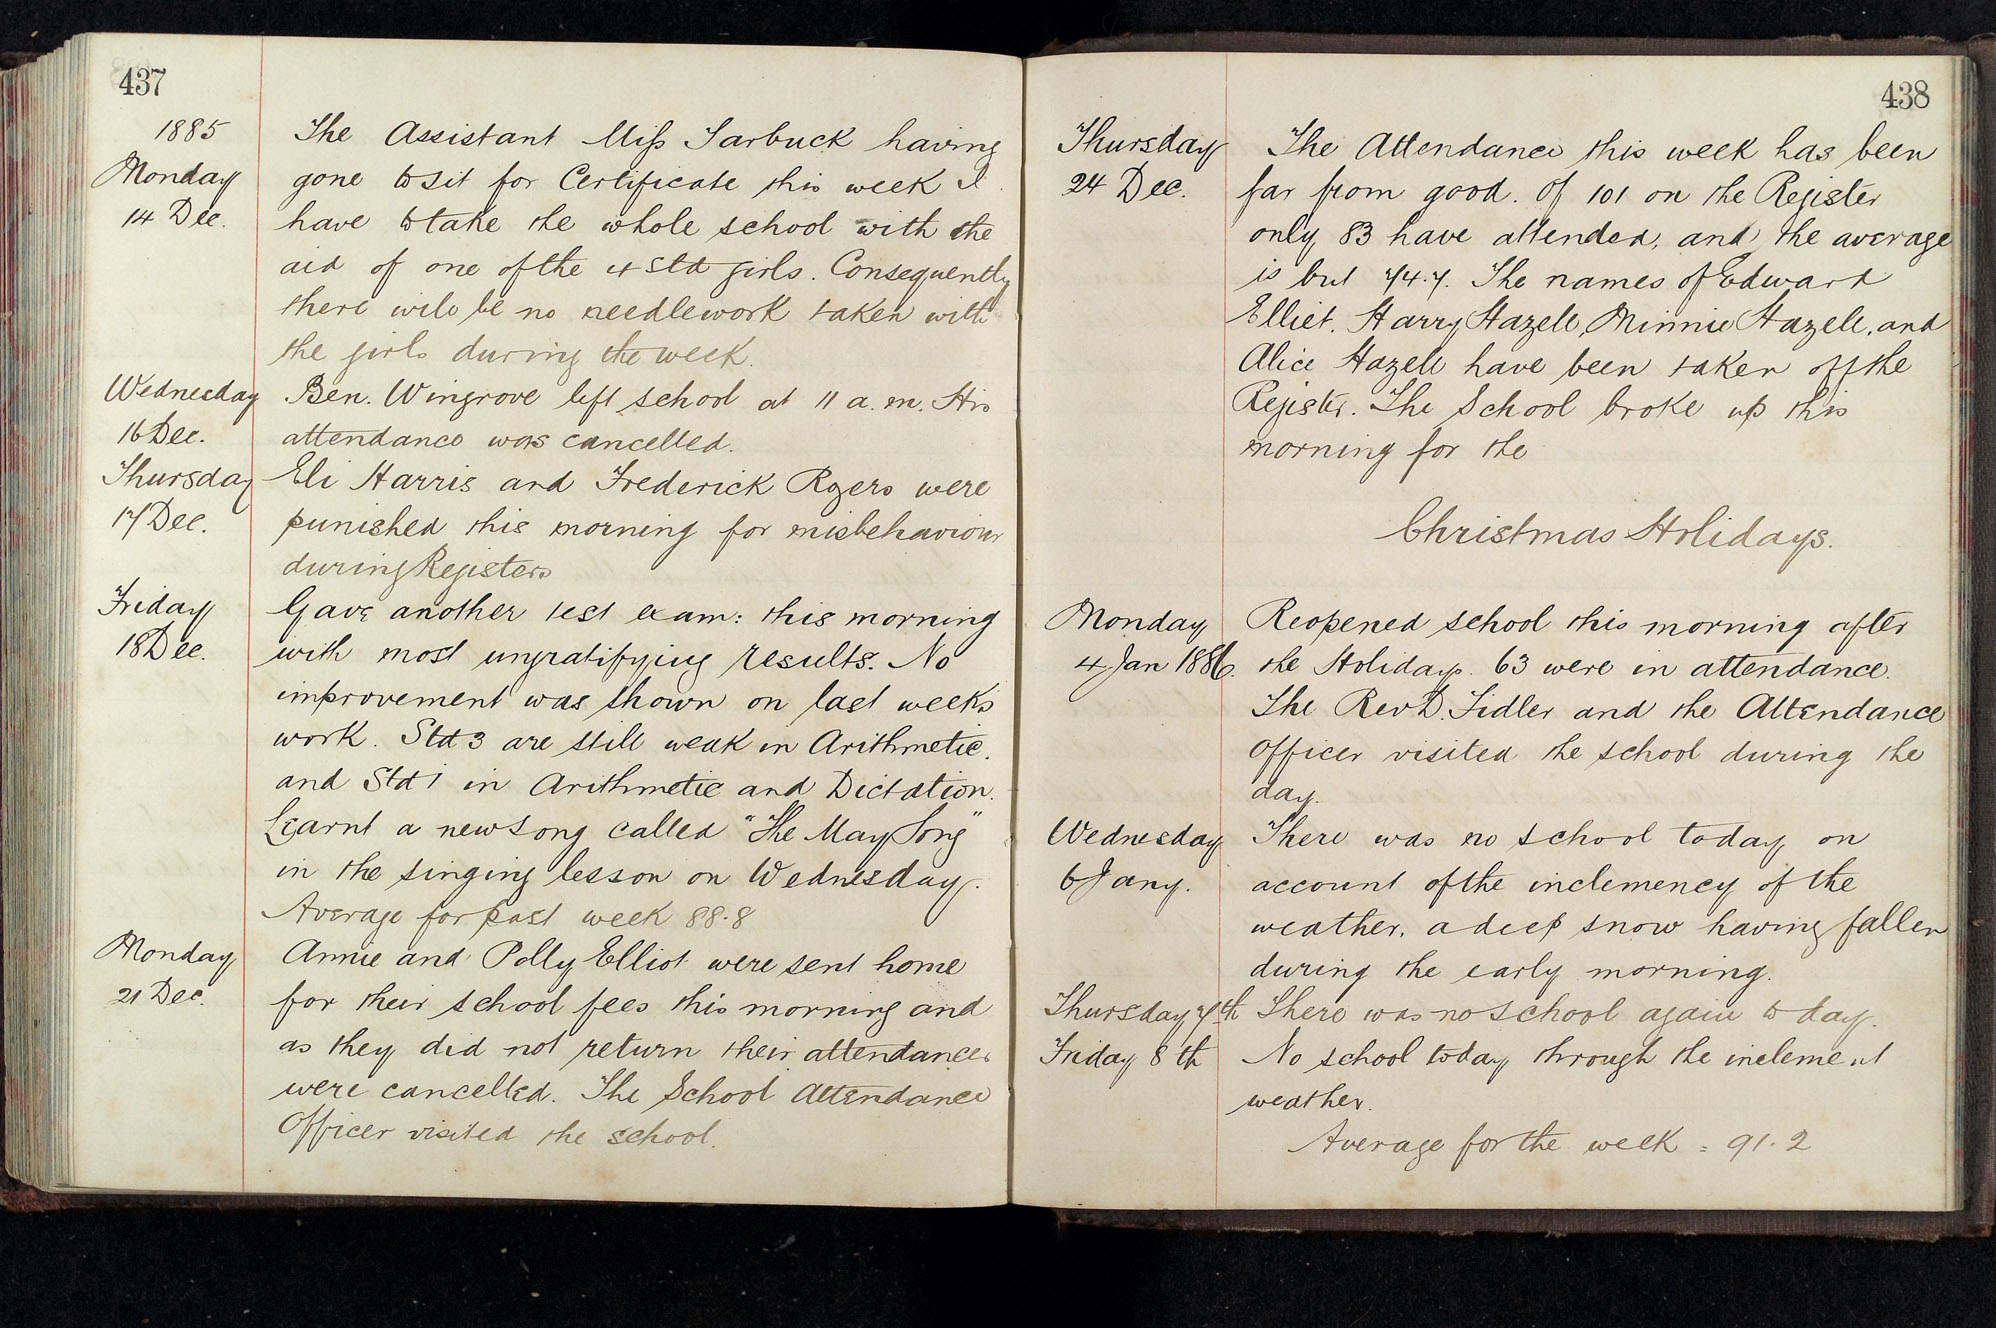 437
1885
Monday
14 Dec.
The Assistant Miss Tarbuck having
gone to sit for Certificate this week I
have to take the whole school with the
aid of one of the 4 Std girls. Consequently
there will be no needlework taken with
the girls during the week.
Wednesday
16 Dec.
Ben. Wingrove left school at 11 a.m. His
attendance was cancelled.
Thursday
17 Dec.
Eli Harris and Frederick Rogers were
punished this morning for misbehaviour
during Registers
Friday
18 Dec.
Gave another test exam: this morning
with most ungratifying results. No
improvement was shown on last weeks
work. Std 3 are still weak in Arithmetic.
and Std 1 in Arithmetic and Dictation.
Learnt a new song called "The May Song"
in the singing lesson on Wednesday.
Average for past week 88.8
Monday
21 Dec.
Annie and Polly Elliot were sent home
for their school fees this morning and
as they did not return their attendances
were cancelled. The School Attendance
Officer visited the school.
438
Thursday
24 Dec.
The Attendance this week has been
far from good. Of 101 on the Register
only 83 have attended, and the average
is but 74.7. The names of Edward
Elliet, Harry Hazell, Minnie Hazell, and
Alice Hazell have been taken off the
Register. The School broke up this
morning for the
Christmas Holidays.
Monday
4 Jan 1886.
Reopened school this morning after
the Holidays. 63 were in attendance.
The Rev D. Fidler and the Attendance
Officer visited the school during the
day.
Wednesday
6 Jany.
There was no school today on
account of the inclemency of the
weather, a deep snow having fallen
during the early morning.
Thursday 7th There was no school again to day.
Friday 8th No school today through the inclement
weather.
Average for the week = 91.2